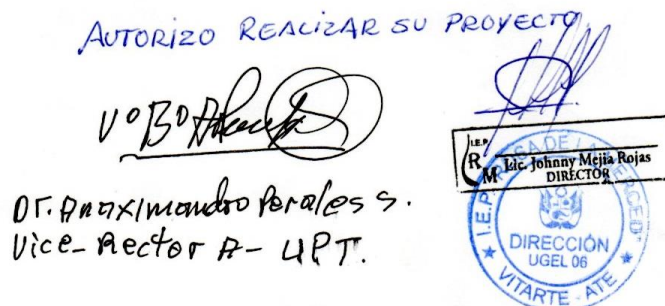 AUTORIZO REALIZAR SU PROYECTO
VºBº
Dr. Anaximandro Perales S.
Vice-Rector A- UPT.
I.E.P.
R M
Lic. Johnny Mejia Rojas
DIRECTOR
I.E.P. DE LA MERCED
DIRECCIÓN
UGEL 06
VITARTE - ATE